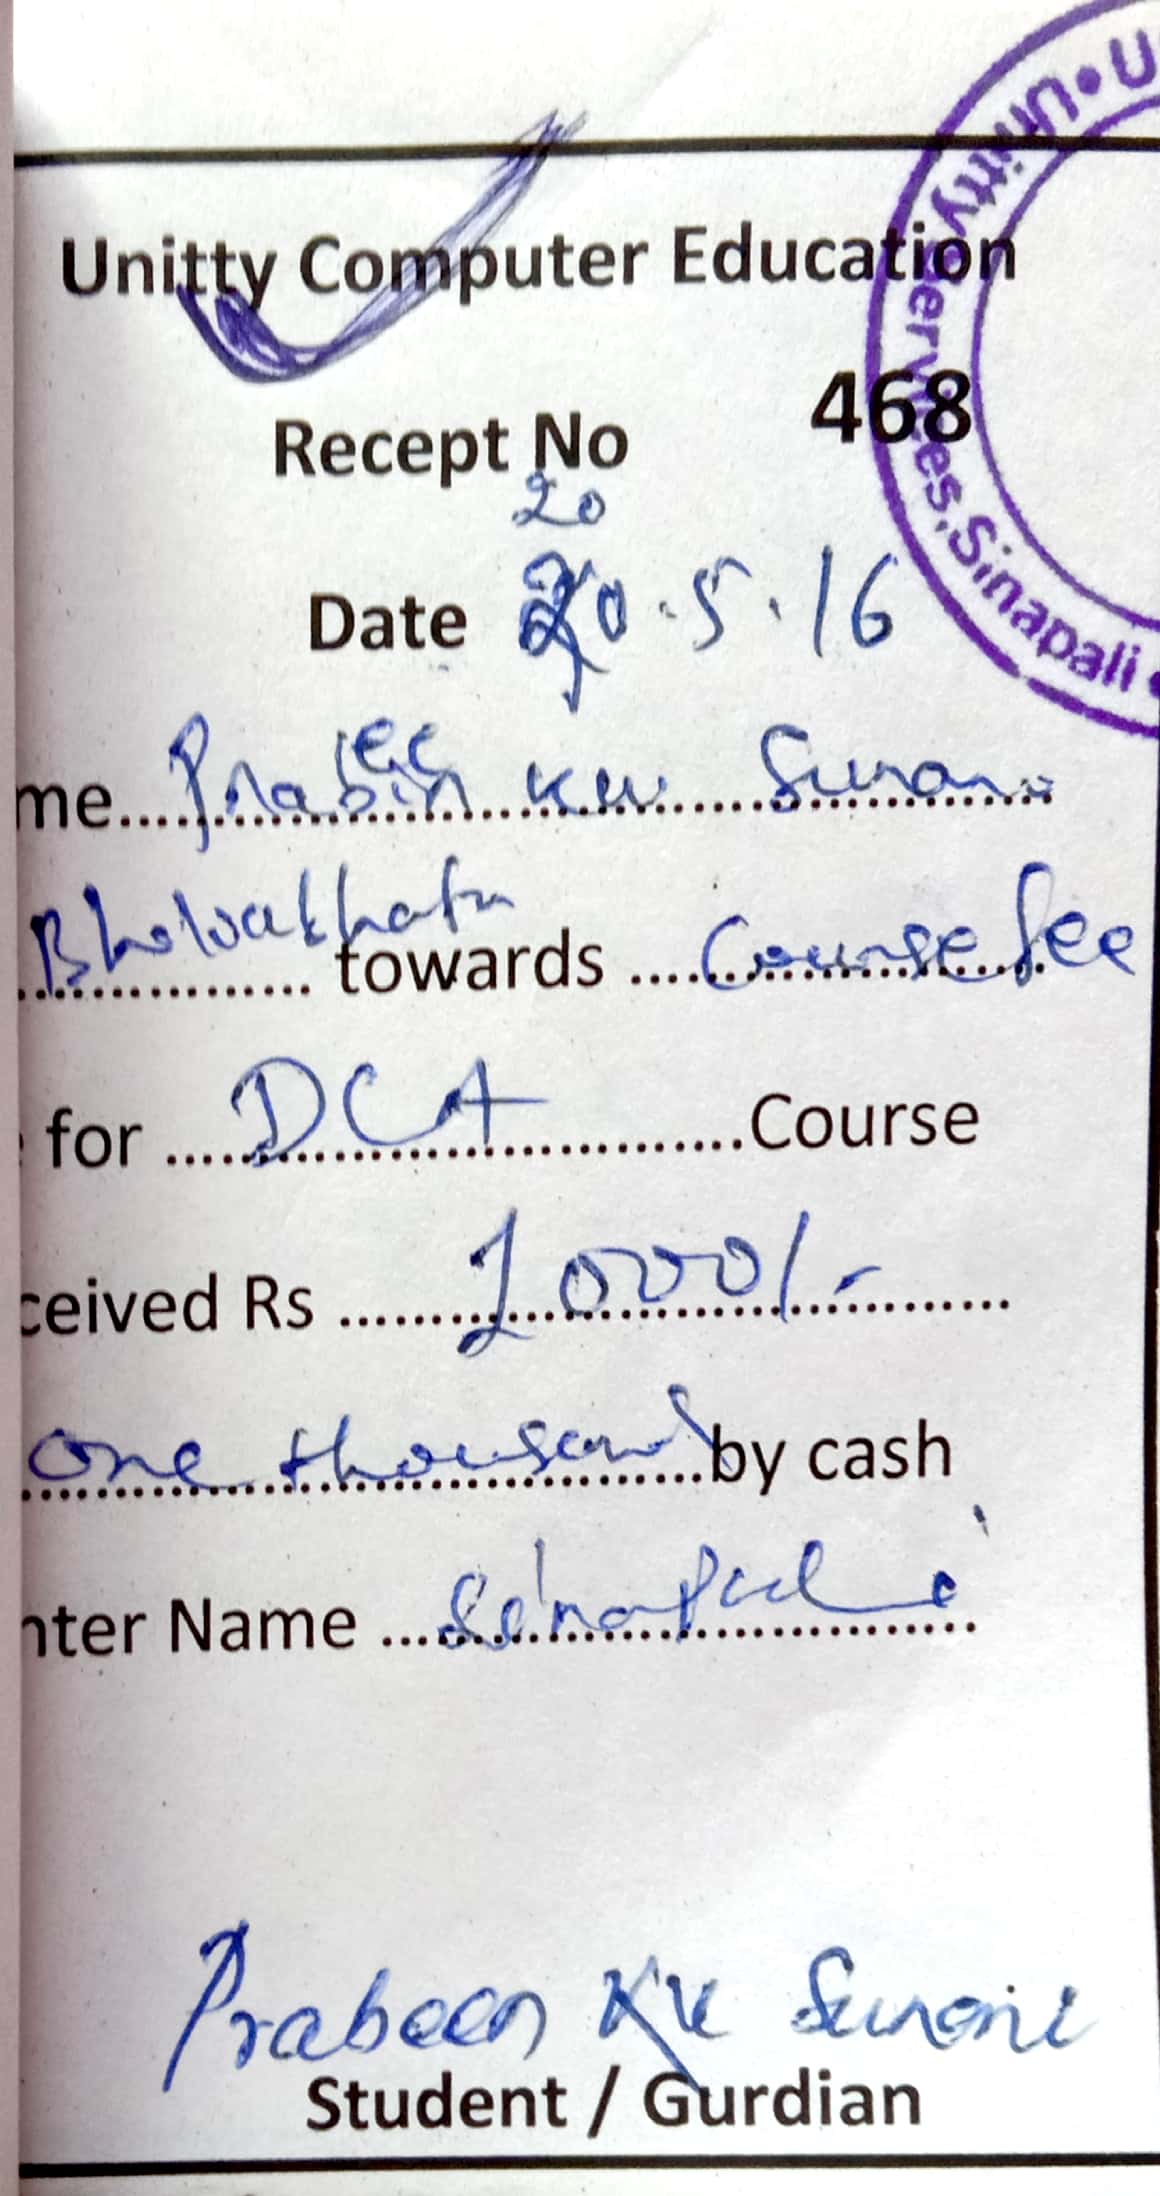 Unitty Computer Education
Unitty Services, Sinapali
Recept No 468
20
Date 20.5.16
me.... Prabin ee Ku Sunani
Bhelwakhata towards .... Course fee
for .... DCA .... Course
ceived Rs .... 1000/-
one thousand by cash
nter Name .... Sinapali
Prabeen Ku Sunani
Student / Gurdian